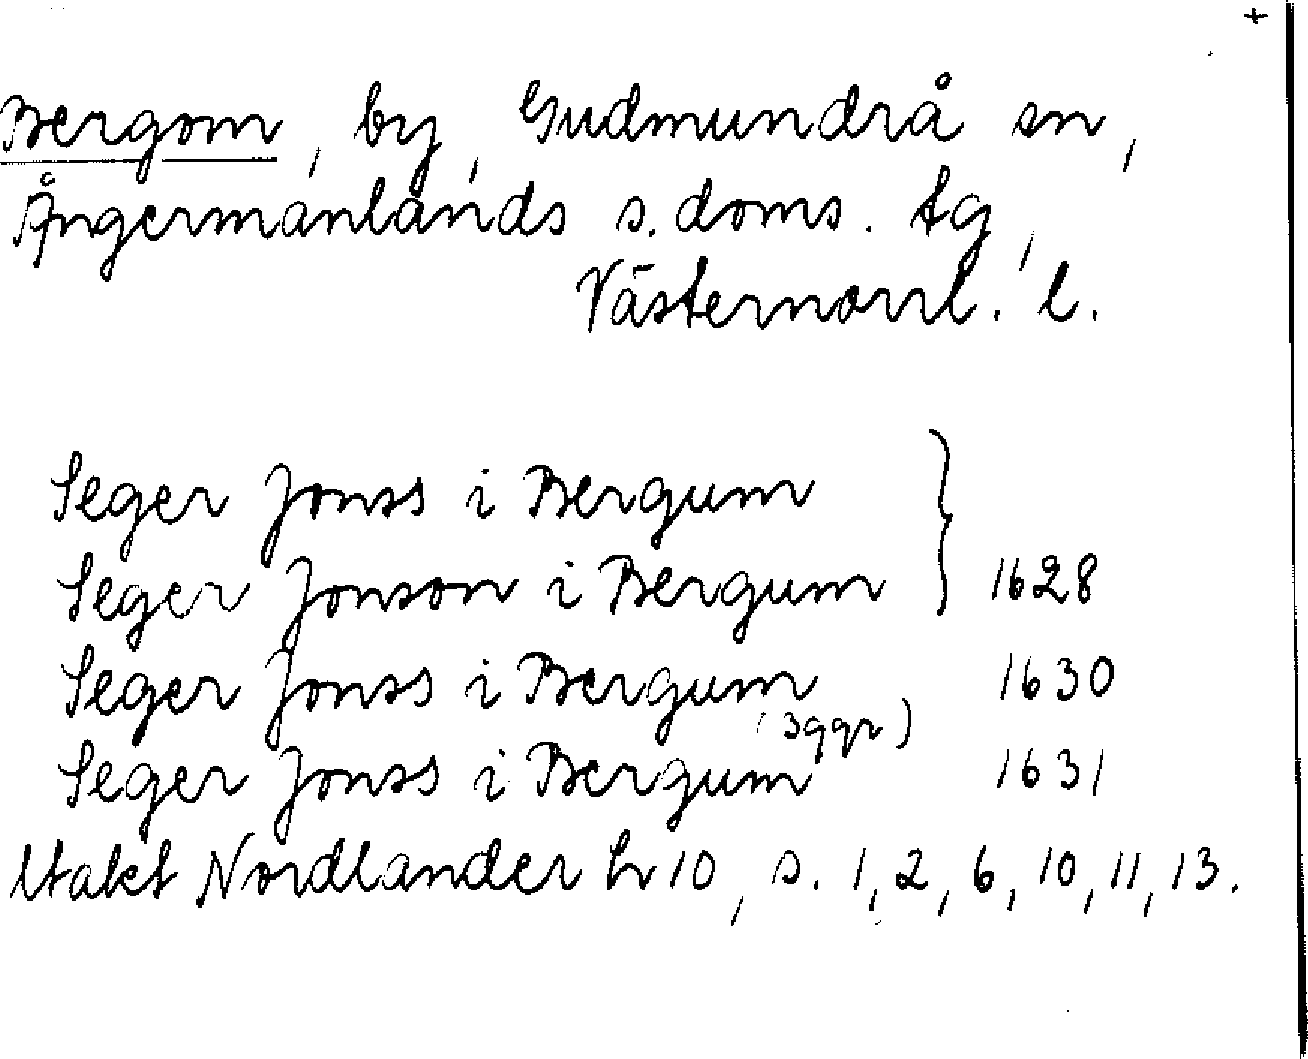 +
Bergom, by, Gudmundrå sn,
Ångermanlands s. doms. tg,
Västernorrl. l.
Seger Jonss i Bergum
Seger Jonson i Bergum } 1628
Seger Jonss i Bergum 1630
(3 ggr)
Seger Jonss i Bergum 1631
Utakt Nordlander h 10, s. 1, 2, 6, 10, 11, 13.